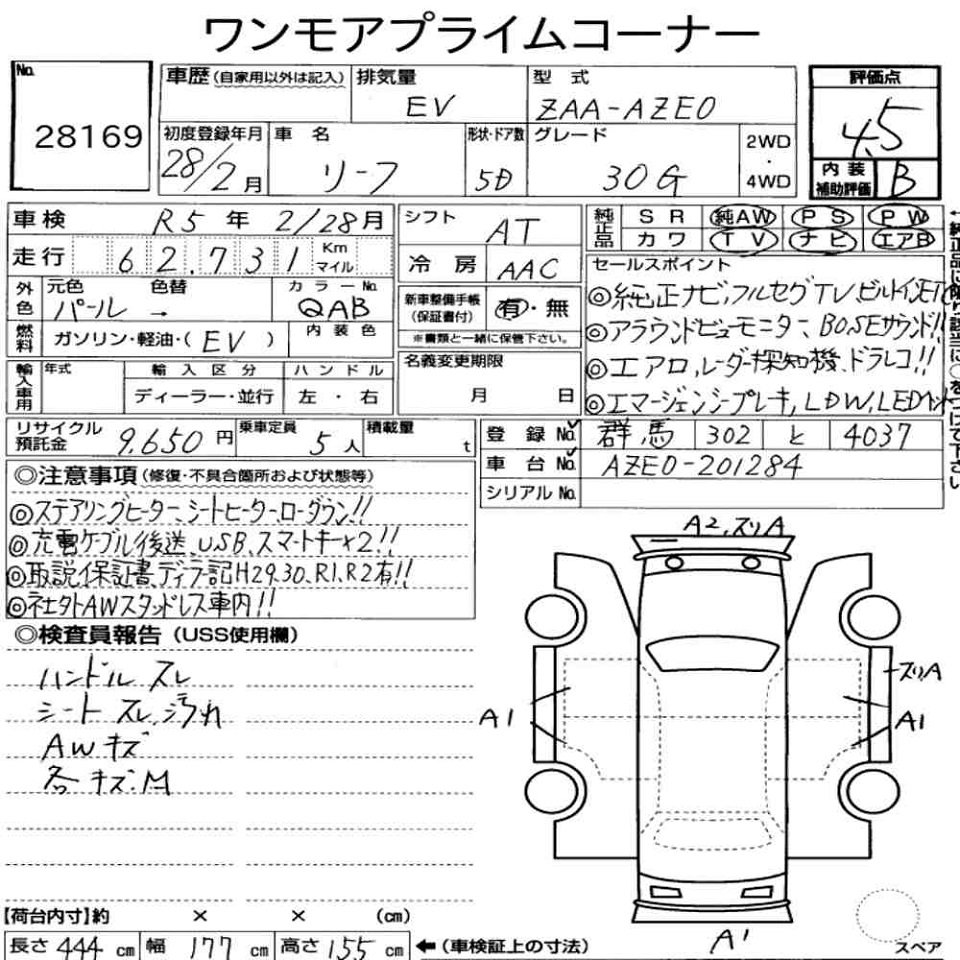 ワンモアプライムコーナー
No.
28169
車歴(自家用以外は記入)
排気量
EV
型 式
ZAA-AZE0
評価点
4.5
初度登録年月
28/2月
車 名
リーフ
形状・ドア数
5D
グレード
30G
2WD
・
4WD
内 装
補助評価
B
車検 R5年 2/28月
走行 62,731 Km マイル
シフト
AT
冷 房
AAC
純正品
SR 純AW PS PW
カワ TV ナビ エアB
外色
元色
パール
→
色替
カラーNo.
QAB
新車整備手帳
(保証書付)
有・無
※書類と一緒に保管下さい。
セールスポイント
◎純正ナビ,フルセグTV,ビルトインETC
◎アラウンドビューモニター、BOSEサウンド!!
◎エアロ,レーダー探知機、ドラレコ!!
◎エマージェンシーブレーキ,LDW,LEDヘッド
燃料
ガソリン・軽油・(EV)
内 装 色
名義変更期限
月 日
輸入車用
年式
輸 入 区 分
ディーラー・並行
ハンドル
左・右
リサイクル
預託金
9,650円
乗車定員
5人
積載量
t
登 録 No. 群馬 302 と 4037
車 台 No. AZE0-201284
シリアル No.
◎注意事項(修復・不具合箇所および状態等)
◎ステアリングヒーター、シートヒーター,ローダウン!!
◎充電ケーブル後送、USB、スマートキー×2!!
◎取説保証書,ディーラー記H29.30、R1,R2有!!
◎社外AWスタッドレス車内!!
◎検査員報告(USS使用欄)
ハンドル スレ
シート スレ汚れ
AWキズ
各キズ.M
A2,スリA
スリA
A1
A1
A1
スペア
【荷台内寸】約 × × (cm)
長さ 444 cm 幅 177 cm 高さ 155 cm
←(車検証上の寸法)